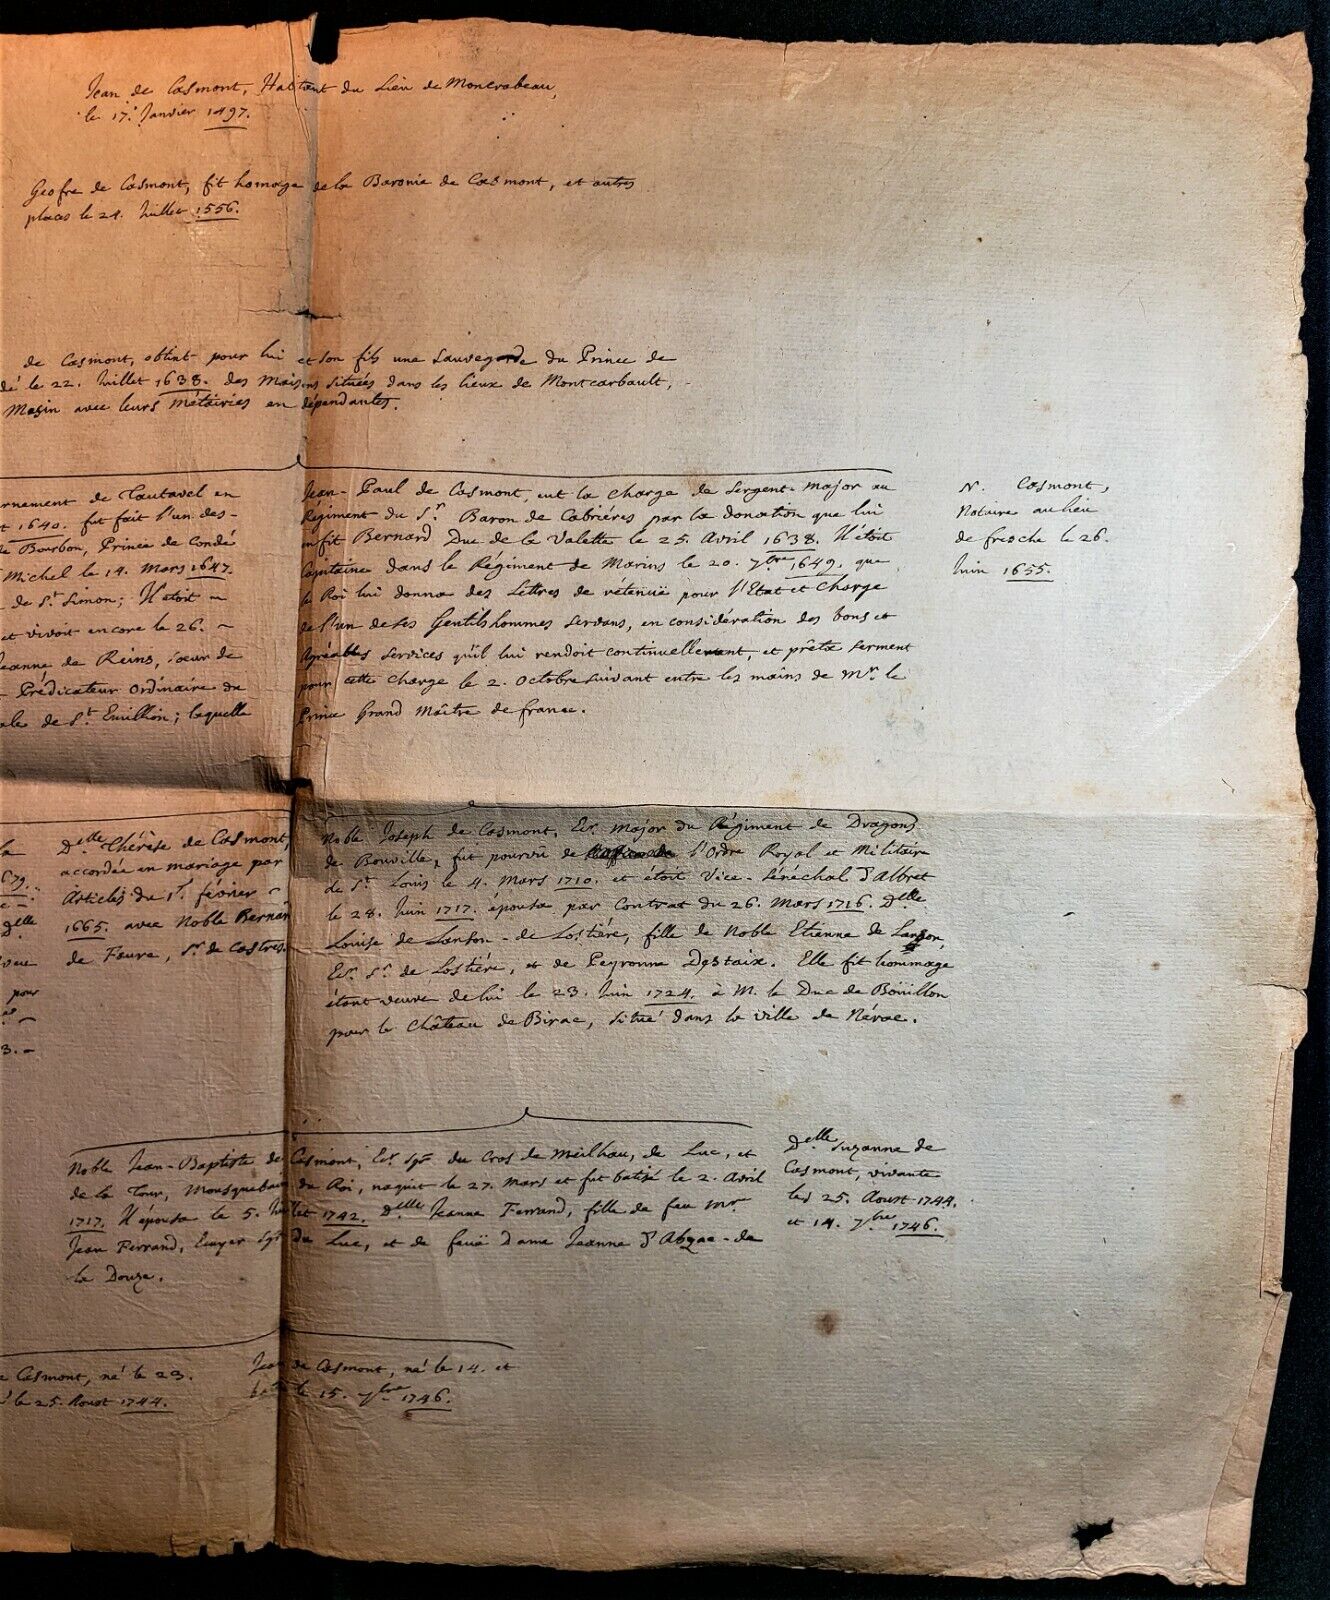 Jean de Casmont, Habitant du Lieu de Moncrabeau,
le 17. Janvier 1497.
Geofre de Casmont, fit homage de la Baronie de Casmont, et autres
places le 24. Juillet 1556.
de Casmont, obtint pour lui et son fils une sauvegarde du Prince de
dé le 22. Juillet 1638. des Maisons situées dans les lieux de Montcarbault,
Masin avec leurs Métairies en dépendantes.
rnement de Tautavel en
t 1640. fut fait l'un des-
e Bourbon, Prince de Condé
Michel le 14. Mars 1647.
de St. Simon; Il étoit
et vivoit encore le 26.
Jeanne de Reins, sœur de
Prédicateur Ordinaire du
ale de St. Emillion; laquelle
Jean-Paul de Casmont, eut la charge de Sergent-Major au
Régiment du Sr. Baron de Cabriéres par la donation que lui
en fit Bernard Duc de la Valette le 25. Avril 1638. Il étoit
Capitaine dans le Régiment de Marins le 20. 7bre 1649. que
le Roi lui donna des Lettres de réténüe pour l'Etat et charge
de l'un de ses Gentilshommes servans, en considération des bons et
Agréables services qu'il lui rendoit continuellement, et prêta serment
pour cette charge le 2. Octobre suivant entre les mains de Mr. le
Prince Grand Maître de france.
N. Casmont,
Notaire au lieu
de fresche le 26.
Juin 1655.
la
679.
Delle
veu
pour
3.
Delle Thérèse de Casmont,
accordée en mariage par
Articles du 1r. février
1665. avec Noble Bernar
de Faure, Sr. de Castres.
Noble Joseph de Casmont, Er. Major du Régiment de Dragons
de Bouville, fut pourvû de l'Ordre Royal et Militaire
de St. Louis le 4. Mars 1710. et étoit Vice-Sénéchal d'Albret
le 28. Juin 1717. épousa par Contrat du 26. Mars 1716. Delle
Louise de Lanson-de Lostiére, fille de Noble Etienne de Lanson,
Er. Sr. de Lostiére, et de Peyronne Destaix. Elle fit hommage
étant veuve de lui le 23. Juin 1724. à M. le Duc de Boüillon
pour le Château de Birac, situé dans la ville de Nérac.
Noble Jean-Baptiste de Casmont, Er. Sgr. du Cros de Meilhau, de Luc, et
de la Tour, Mousquetaire du Roi, naquit le 27. Mars et fut batisé le 2. Avril
1717. Il épousa le 5. Juillet 1742. Delle Jeanne Ferrand, fille de feu Mr.
Jean Ferrand, Ecuyer Sgr. du Luc, et de feuë Dame Jeanne d'Abzac-de
la Douze.
Delle Suzanne de
Casmont, vivante
les 25. Aoust 1744.
et 14. 7bre 1746.
e Casmont, né le 23.
le 25. Aoust 1744.
Jean de Casmont, né le 14. et
batisé le 15. 7bre 1746.